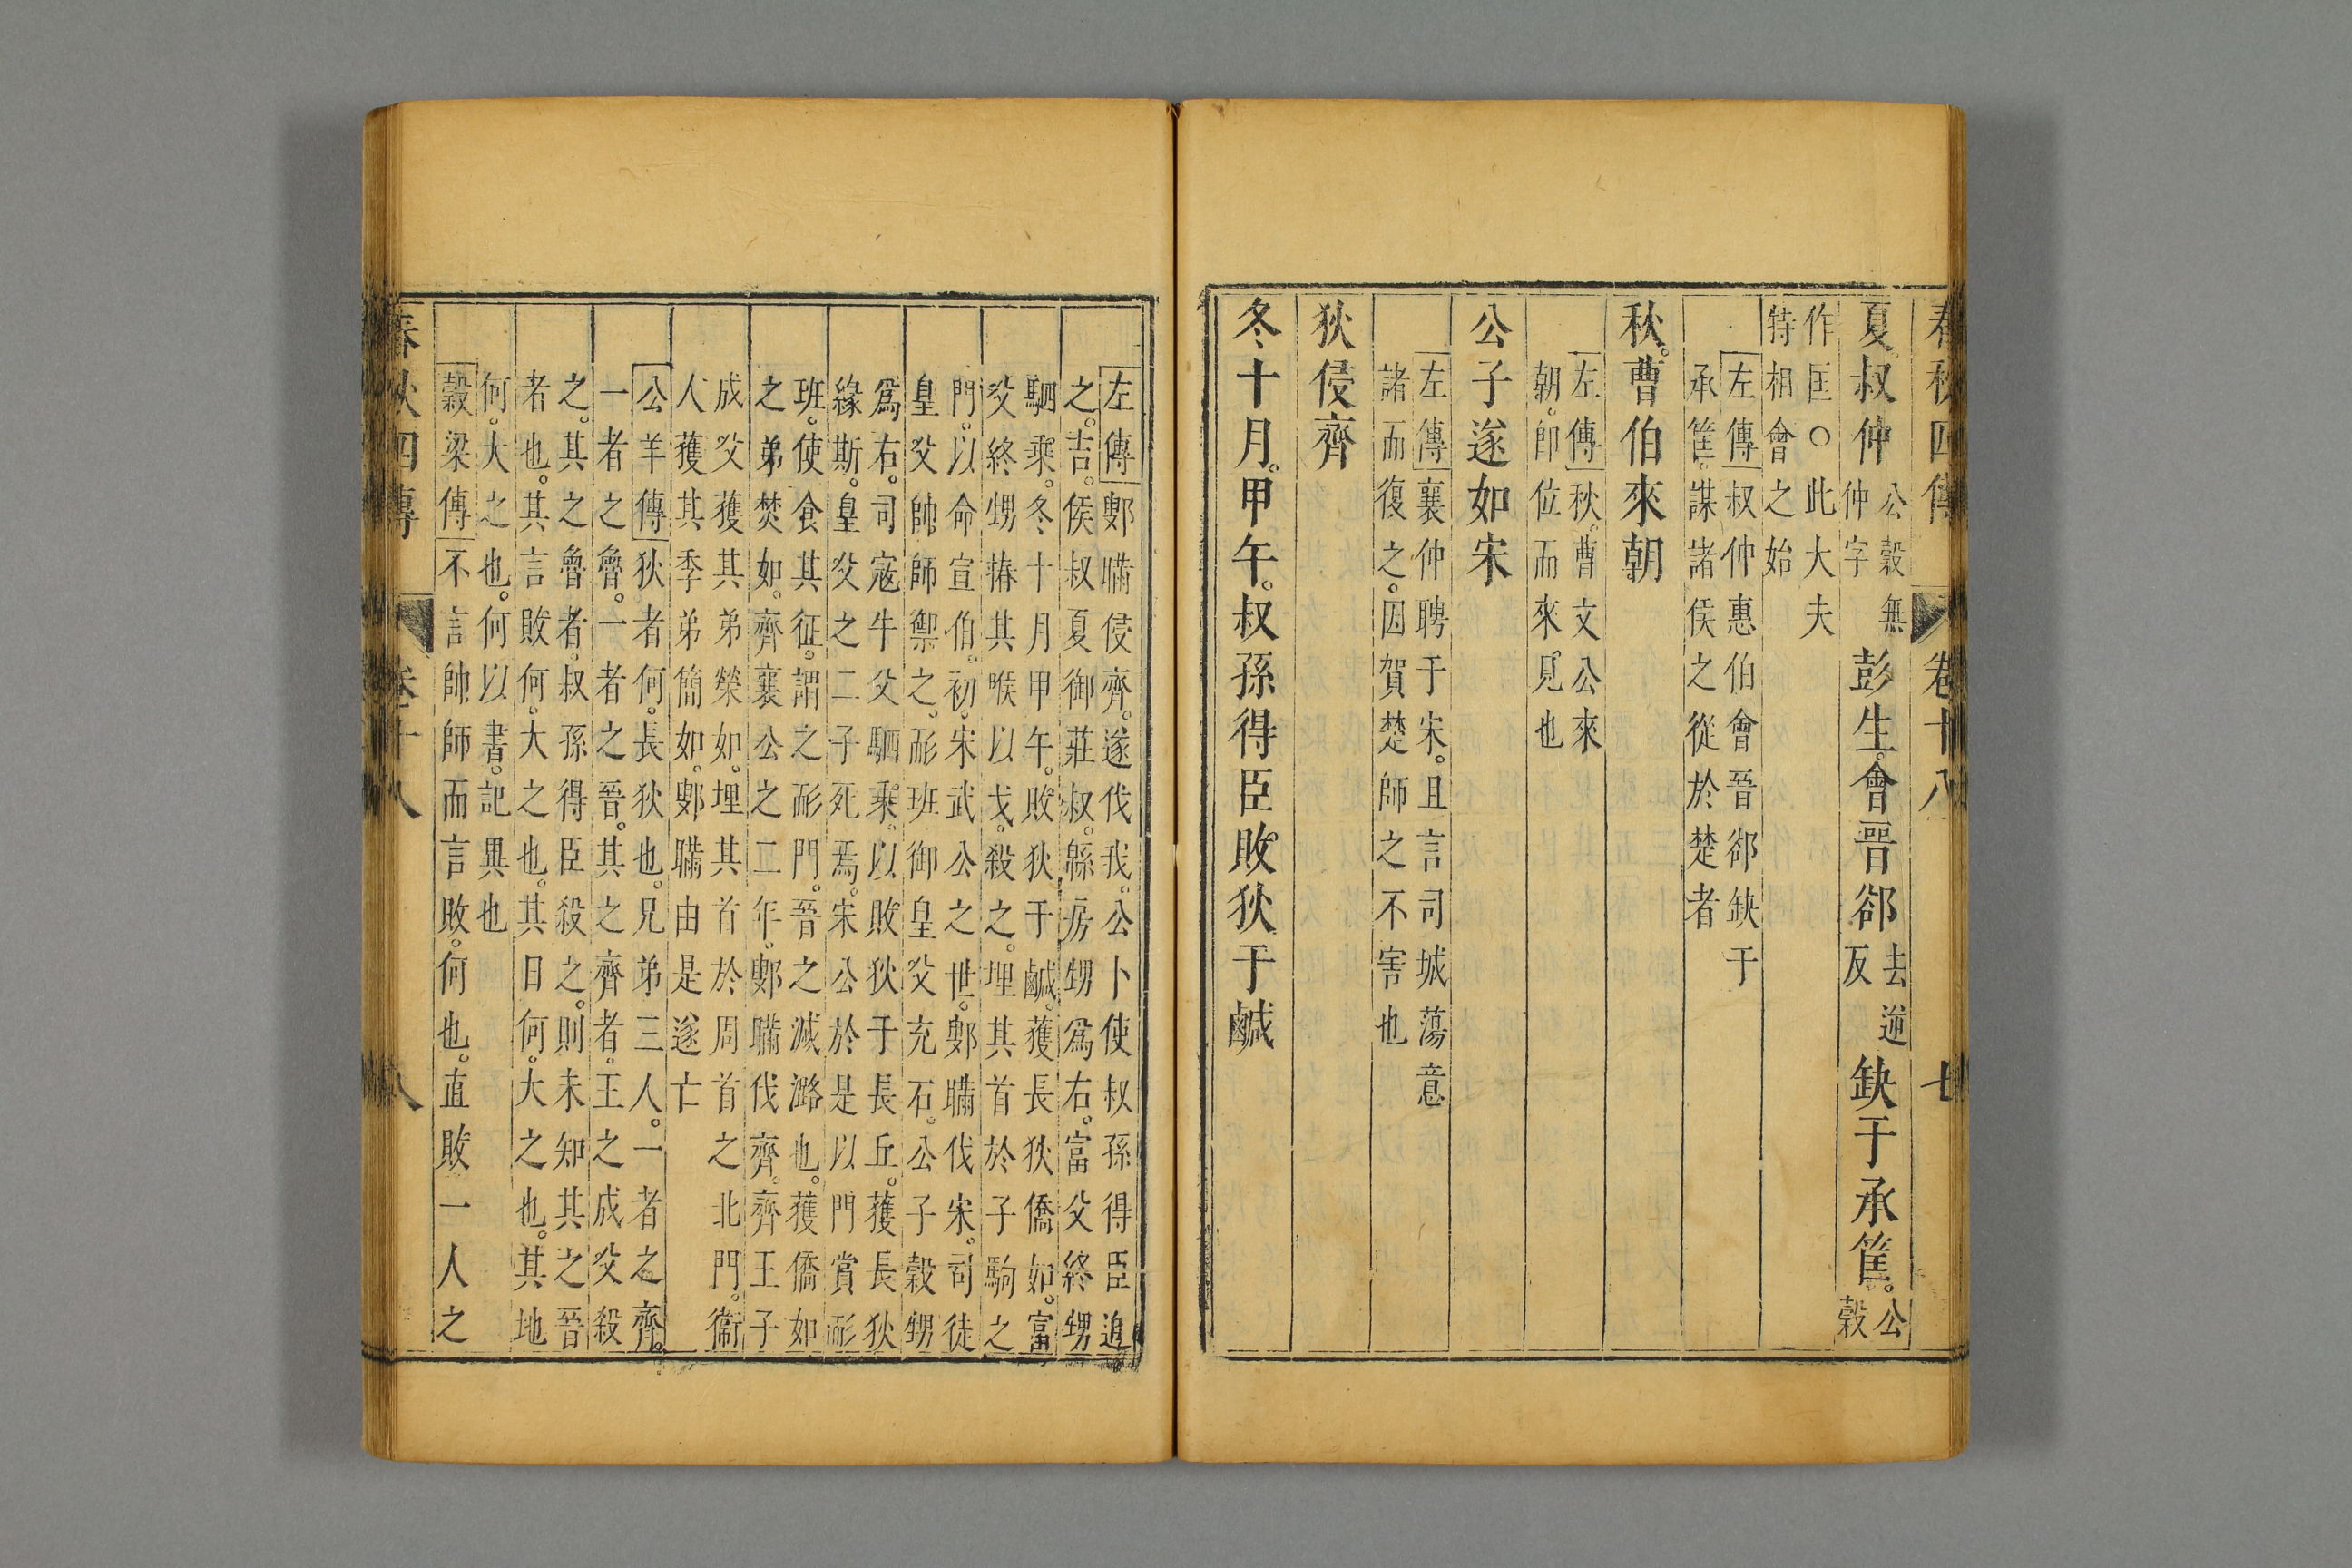 春秋四傳 卷十八 七
夏叔仲公穀無仲字彭生會晉郤去逆反缺于承筐公穀
作匡○此大夫
特相會之始
左傳叔仲惠伯會晉郤缺于
承筐謀諸侯之從於楚者
秋曹伯來朝
左傳秋曹文公來
朝即位而來見也
公子遂如宋
左傳襄仲聘于宋且言司城蕩意
諸而復之因賀楚師之不害也
狄侵齊
冬十月甲午叔孫得臣敗狄于鹹
左傳鄋瞞侵齊遂伐我公卜使叔孫得臣追
之吉侯叔夏御莊叔緜房甥爲右富父終甥
駟乘冬十月甲午敗狄于鹹獲長狄僑如富
父終甥摏其喉以戈殺之埋其首於子駒之
門以命宣伯初宋武公之世鄋瞞伐宋司徒
皇父帥師禦之耏班御皇父充石公子穀甥
爲右司寇牛父駟乘以敗狄于長丘獲長狄
緣斯皇父之二子死焉宋公於是以門賞耏
班使食其征謂之耏門晉之滅潞也獲僑如
之弟焚如齊襄公之二年鄋瞞伐齊齊王子
成父獲其弟榮如埋其首於周首之北門衞
人獲其季弟簡如鄋瞞由是遂亡
公羊傳狄者何長狄也兄弟三人一者之齊
一者之魯一者之晉其之齊者王子成父殺
之其之魯者叔孫得臣殺之則未知其之晉
者也其言敗何大之也其日何大之也其地
何大之也何以書記異也
穀梁傳不言帥師而言敗何也直敗一人之
春秋四傳 卷十八 八